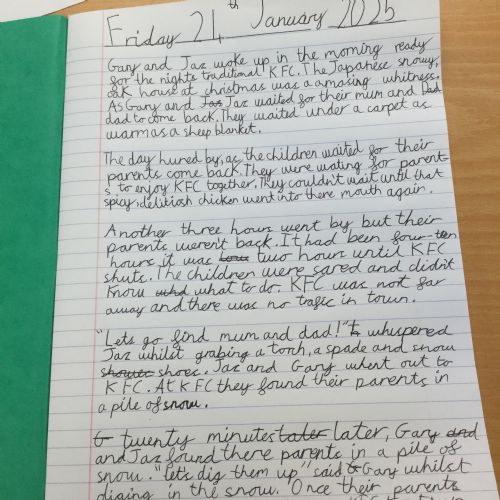 Friday 24th January 2025
Gary and Jaz woke up in the morning ready
for the nights traditional KFC. The Japanese snowy,
oak house at christmas was a amasing whitness.
As Gary and Jas Jaz waited for their mum and Dad
dad to come back. They waited under a carpet as
warm as a sheep blanket.
The day hured by, as the children waited for their
parents come back. They were wating for parent
s to enjoy KFC together. They couldn't wait until that
spicy, delitiosh chicken went into there mouth again.
Another three hours went by but their
parents werent back. It had been four ten
hours it was two hours until KFC
shuts. The children were sared and didn't
know what to do. KFC was not far
away and there was no trafic in town.
"Lets go find mum and dad!" whuspered
Jaz whilst grabing a torch, a spade and snow
shoes. Jaz and Gary whent out to
KFC. At KFC they found their parents in
a pile of snow.
twenty minutes later later, Gary and
and Jaz found there parents in a pile of
snow. "let's dig them up" said Gary whilst
diging in the snow. Once their parents